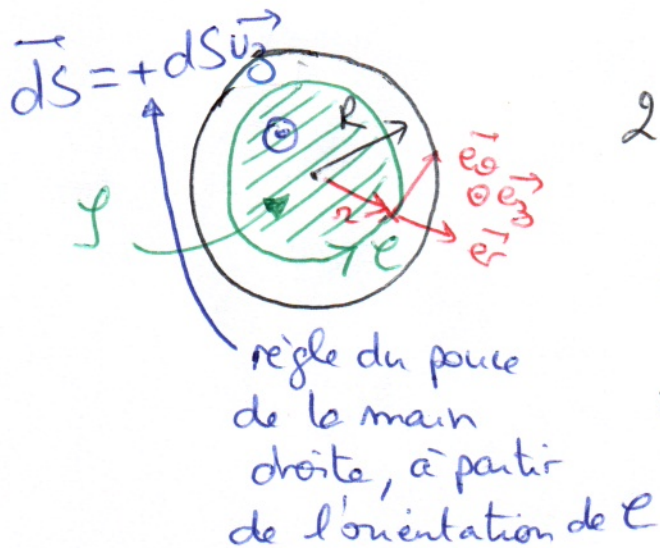 d⃗S = + dS u⃗z
R
2
e⃗θ
e⃗z
r
e⃗r
S
C
règle du pouce
de la main
droite, à partir
de l'orientation de C